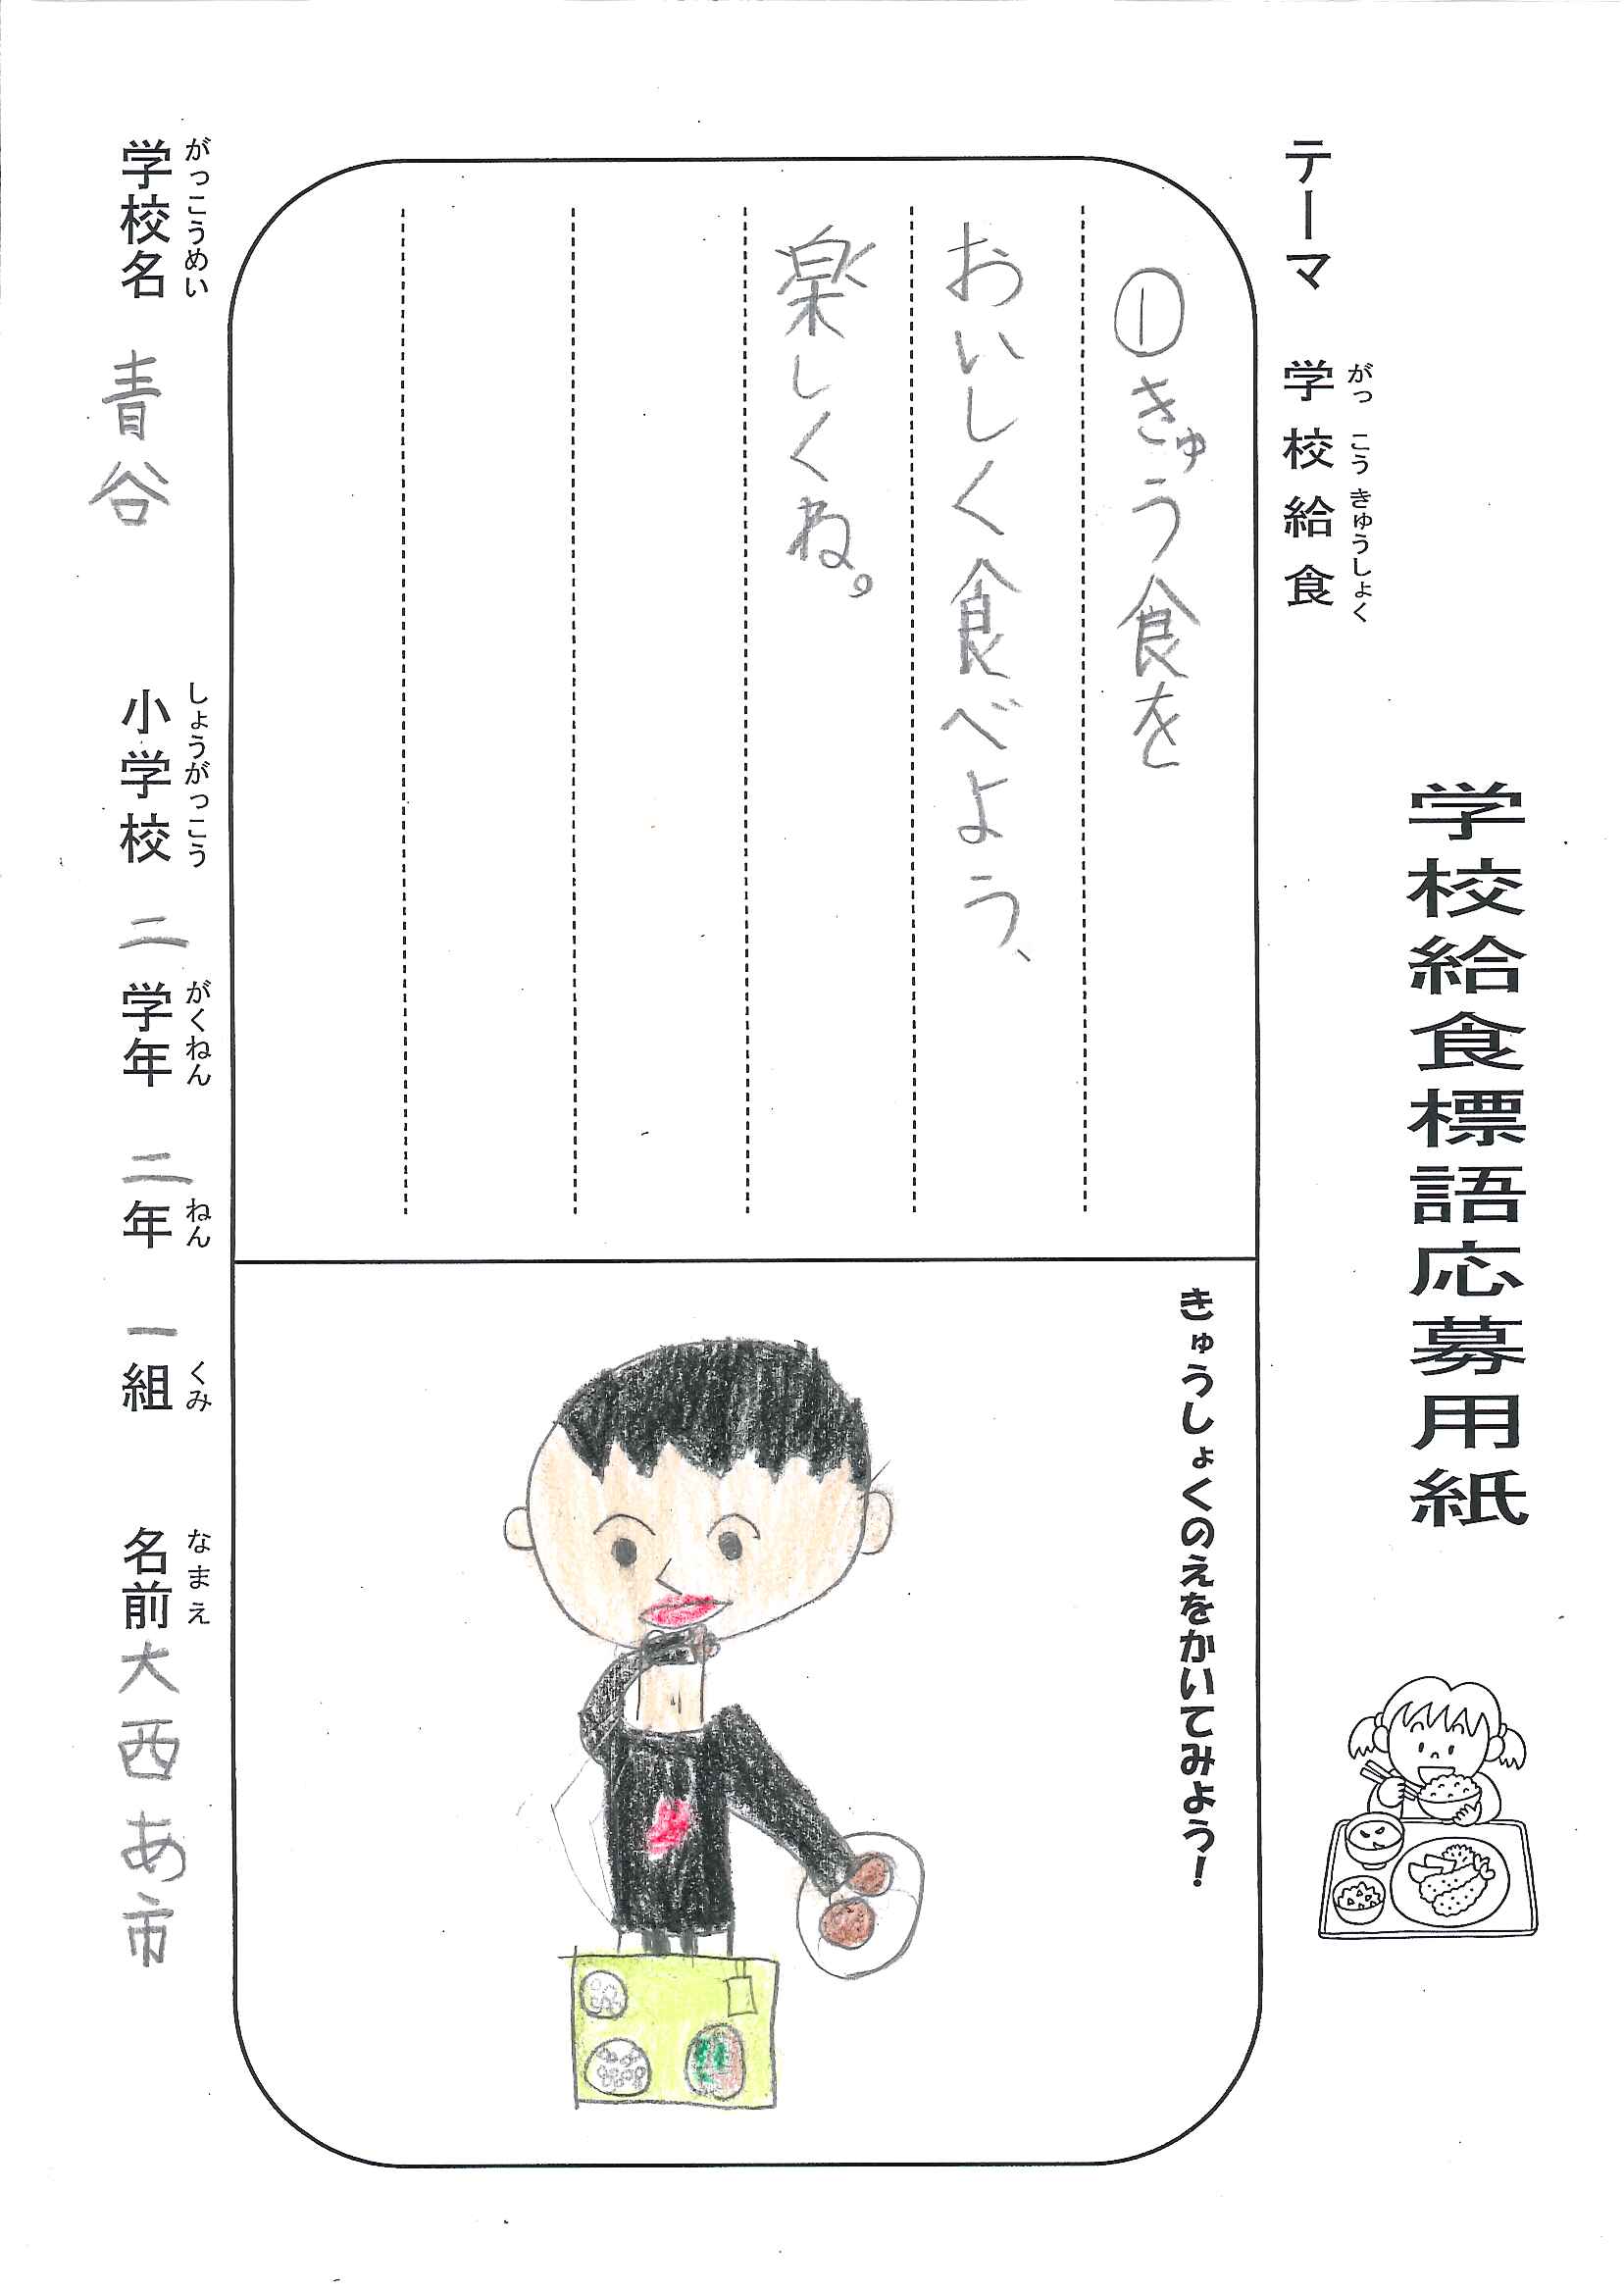 学校給食標語応募用紙
テーマ 学校給食
がっこうきゅうしょく
①きゅう食を
おいしく食べよう、
楽しくね。
きゅうしょくのえをかいてみよう！
がっこうめい しょうがっこう がくねん ねん くみ なまえ
学校名 青谷 小学校 二学年 二年 一組 名前 大西あ市